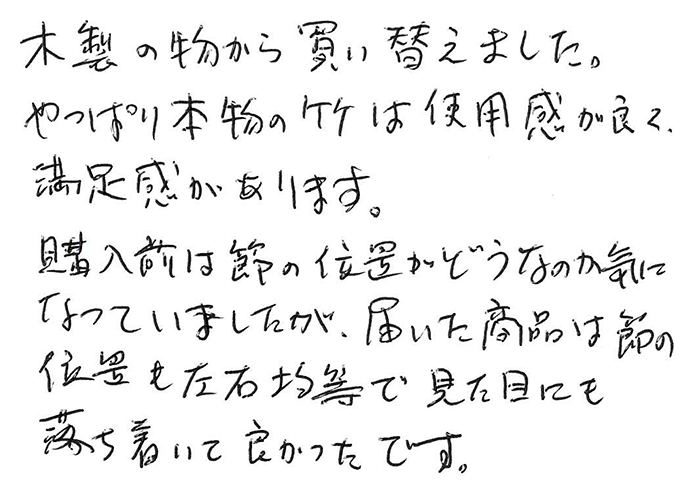 木製の物から買い替えました。
やっぱり本物の竹は使用感が良く、
満足感があります。
購入前は節の位置がどうなのか気に
なっていましたが、届いた商品は節の
位置も左右均等で見た目にも
落ち着いて良かったです。